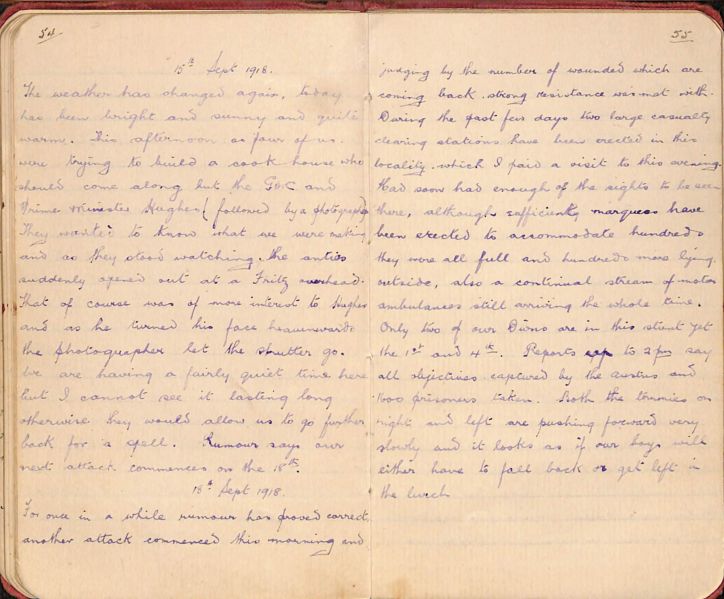 54
15th Sept 1918.
The weather has changed again, today
has been bright and sunny and quite
warm. This afternoon as four of us
were trying to build a cook house who
should come along but the G.O.C and
Prime Minister Hughes (followed by a photographer
They wanted to know what we were making
and as they stood watching, the anties
suddenly opened out at a Fritz overhead.
That of course was of more interest to Hughes
and as he turned his face heavenwards
the photographer let the shutter go.
We are having a fairly quiet time here
but I cannot see it lasting long
otherwise they would allow us to go further
back for a spell. Rumour says our
next attack commences on the 18th.
18th Sept 1918.
For once in a while rumour has proved correct,
another attack commenced this morning and
55
judging by the number of wounded which are
coming back, strong resistance was met with.
During the past few days two large casualty
clearing stations have been erected in this
locality, which I paid a visit to this evening.
Had soon had enough of the sights to be seen
there, although sufficient marquees have
been erected to accommodate hundreds
they were all full and hundreds more lying
outside, also a continual stream of motor
ambulances still arriving the whole time.
Only two of our Divns are in this stunt yet
the 1st and 4th. Reports up to 2 pm say
all objectives captured by the Aussies and
1600 prisoners taken. Both the tommies on
right and left are pushing forward very
slowly and it looks as if our boys will
either have to fall back or get left in
the lurch